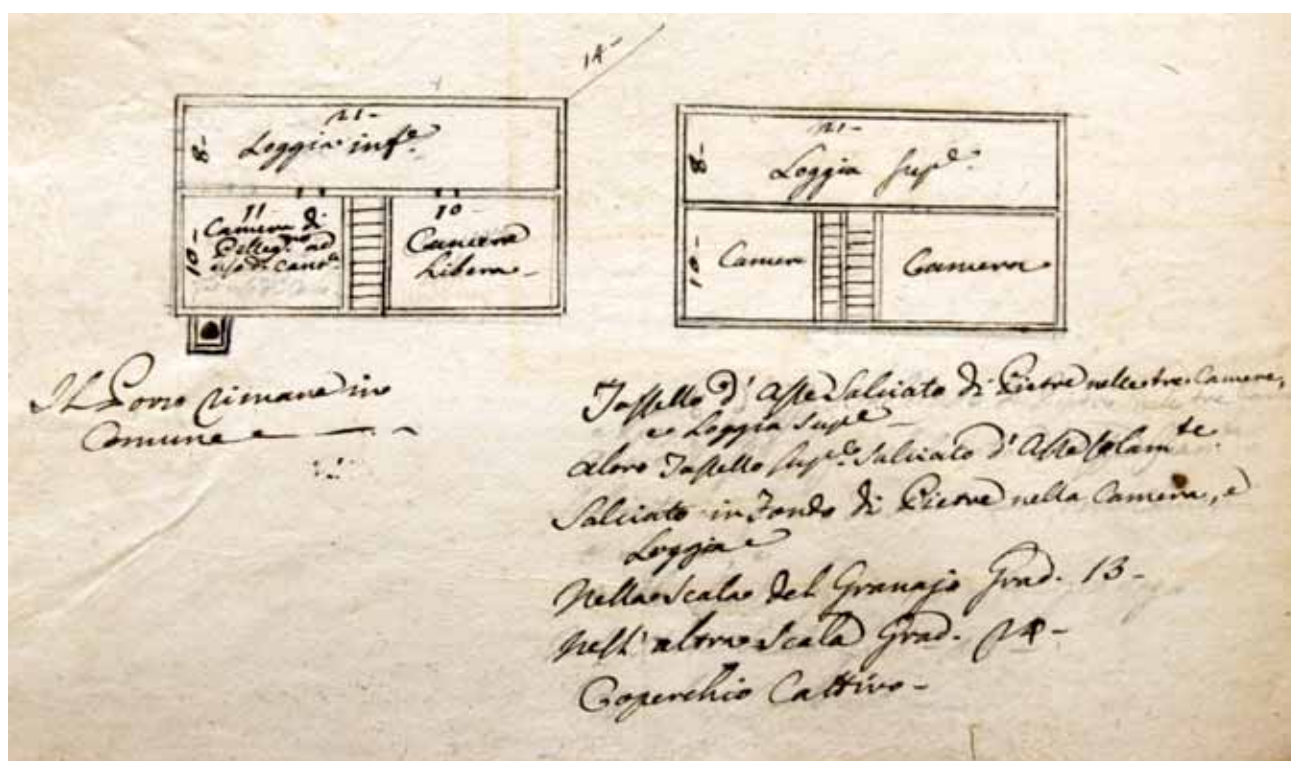 14-
21-
8-
Loggia inf.e
11-
10-
Camera di
Pelleg.no ad
uso di cano.a
10-
Camera
Libera-
21-
8-
Loggia sup.e
10-
Camera
Camera
Il Pozzo rimane in
Comune
Tassello d'Asse Salicato di Pietre nelle tre Camere,
e Loggia sup.e
altro Tassello sup.e Salicato d'Asse solam.te
Salicato in Fondo di Pietre nella Camera, e
Loggia
Nella Scala del Granajo Grad. 13-
Nell'altra Scala Grad. 14-
Coperchio Cattivo-